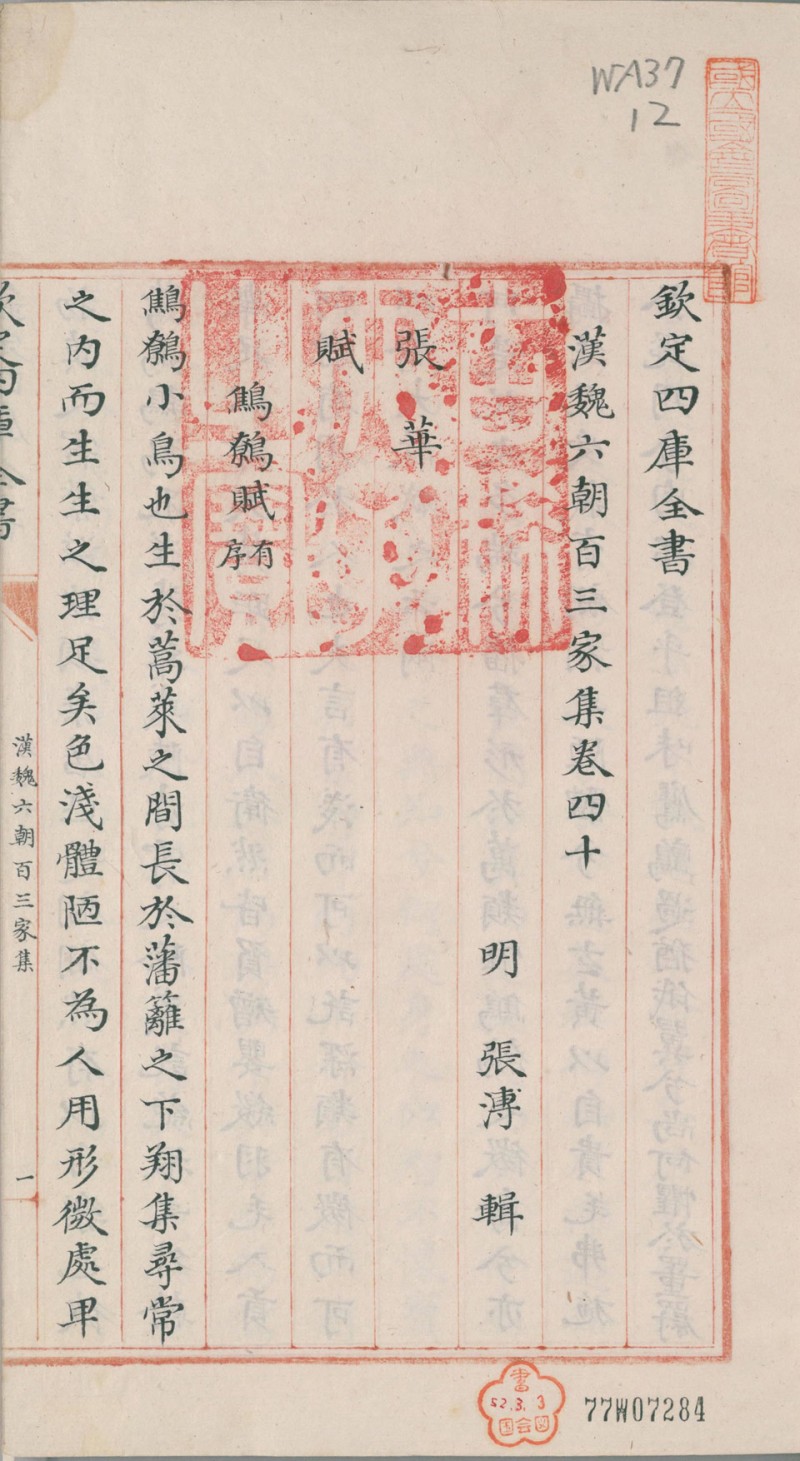 WA37
12
欽定四庫全書
漢魏六朝百三家集卷四十
明 張溥 輯
張華
賦
鷦鷯賦有序
鷦鷯小鳥也生於蒿萊之間長於藩籬之下翔集尋常
之內而生生之理足矣色淺體陋不為人用形微處卑
欽定四庫全書
漢魏六朝百三家集
一
書
52.3.3
77W07284